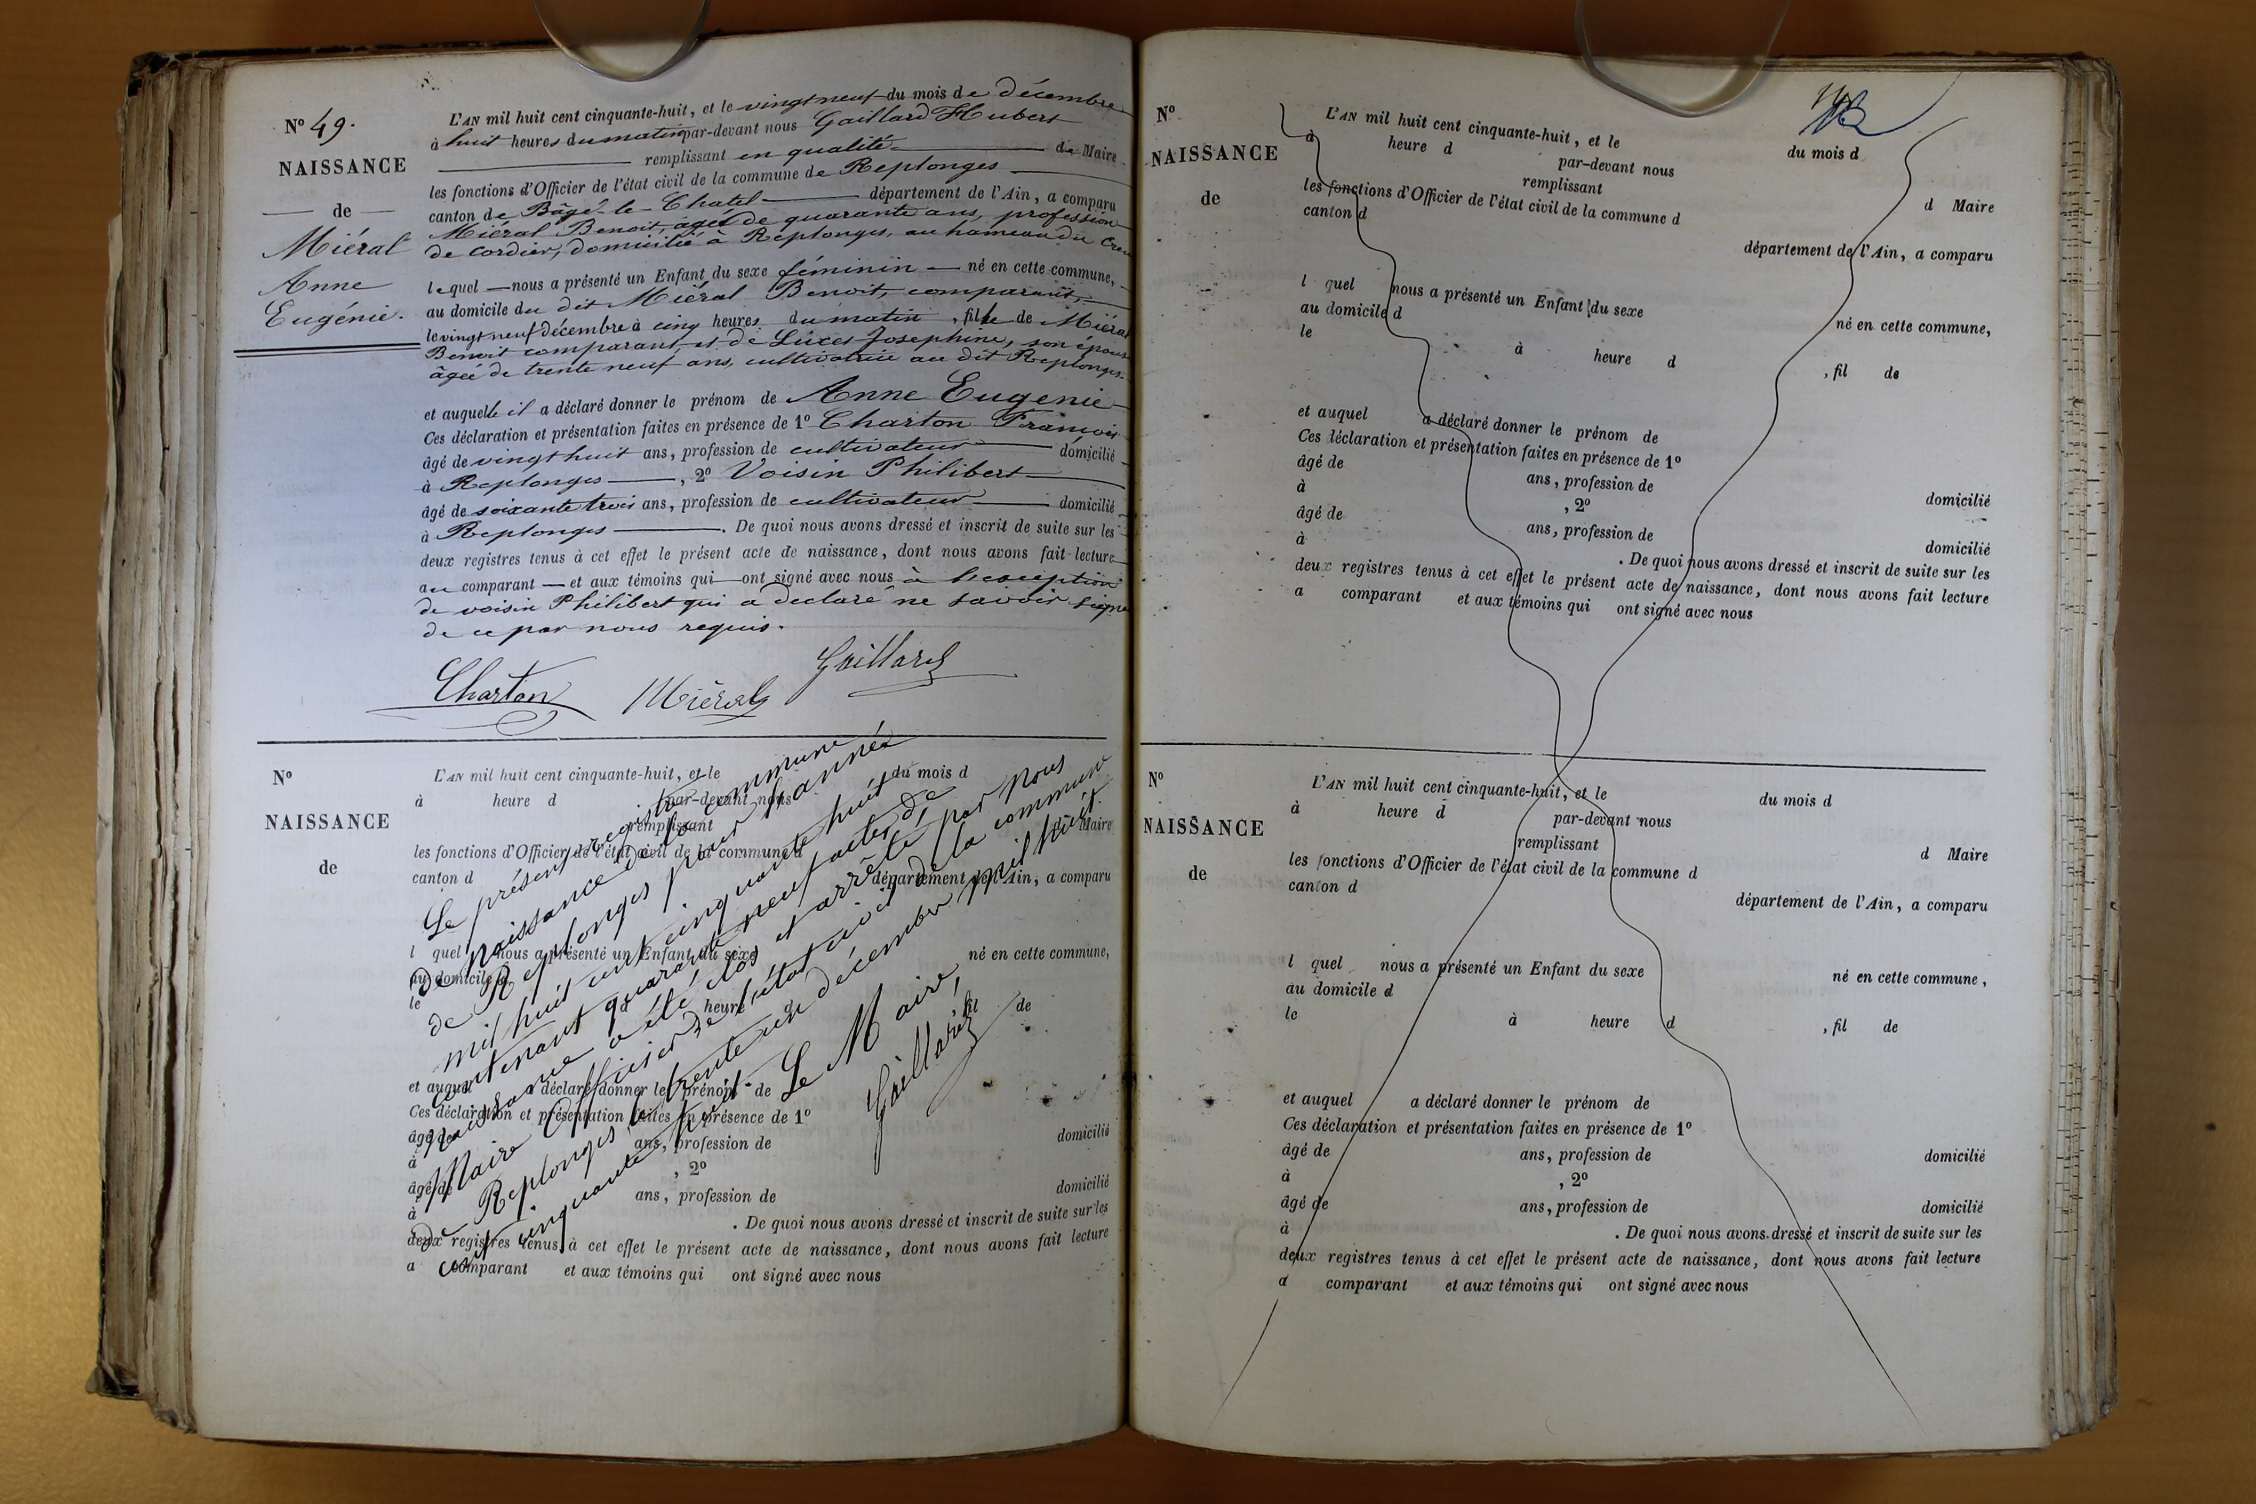 N° 49.
NAISSANCE
de
Miéral
Anne
Eugénie.
L'AN mil huit cent cinquante-huit, et le vingt neuf du mois de décembre
à huit heures du matin par-devant nous Gaillard Hubert
remplissant en qualité de Maire
les fonctions d'Officier de l'état civil de la commune de Replonges
canton de Bâgé-le-Chatel département de l'Ain, a comparu
Miéral Benoit, âgé de quarante ans, profession
de cordier, domicilié à Replonges, au hameau du Creux
lequel nous a présenté un Enfant du sexe féminin né en cette commune,
au domicile du dit Miéral Benoit, comparant,
le vingt neuf décembre à cinq heures du matin, fille de Miéral
Benoit comparant et de Josephine, son épouse
âgée de trente neuf ans, cultivatrice au dit Replonges.
et auquelle il a déclaré donner le prénom de Anne Eugenie
Ces déclaration et présentation faites en présence de 1° Charton François
âgé de vingt huit ans, profession de cultivateur domicilié
à Replonges, 2° Voisin Philibert
âgé de soixante trois ans, profession de cultivateur domicilié
à Replonges. De quoi nous avons dressé et inscrit de suite sur les
deux registres tenus à cet effet le présent acte de naissance, dont nous avons fait lecture
au comparant et aux témoins qui ont signé avec nous à l'exception
de voisin Philibert qui a declaré ne savoir signer
de ce par nous requis.
Charton Miéral Gaillard
N°
NAISSANCE
de
L'AN mil huit cent cinquante-huit, et le du mois d
à heure d par-devant nous
remplissant d Maire
les fonctions d'Officier de l'état civil de la commune d
canton d département de l'Ain, a comparu
l quel nous a présenté un Enfant du sexe né en cette commune,
au domicile d
le à heure d , fil de
et auquel a déclaré donner le prénom de
Ces déclaration et présentation faites en présence de 1°
âgé de ans, profession de domicilié
à , 2°
âgé de ans, profession de domicilié
à . De quoi nous avons dressé et inscrit de suite sur les
deux registres tenus à cet effet le présent acte de naissance, dont nous avons fait lecture
a comparant et aux témoins qui ont signé avec nous
Le présent registre
de naissance de la commune
de Replonges pour l'année
mil huit cent cinquante huit
contenant quarante neuf actes de
Naissance a été clos et arrêté par nous
Maire Officier de l'état civil de la commune
de Replonges, le trente un décembre mil huit
cent cinquante huit. Le Maire,
Gaillard
N°
NAISSANCE
de
L'AN mil huit cent cinquante-huit, et le du mois d
à heure d par-devant nous
remplissant d Maire
les fonctions d'Officier de l'état civil de la commune d
canton d département de l'Ain, a comparu
l quel nous a présenté un Enfant du sexe né en cette commune,
au domicile d
le à heure d , fil de
et auquel a déclaré donner le prénom de
Ces déclaration et présentation faites en présence de 1°
âgé de ans, profession de domicilié
à , 2°
âgé de ans, profession de domicilié
à . De quoi nous avons dressé et inscrit de suite sur les
deux registres tenus à cet effet le présent acte de naissance, dont nous avons fait lecture
a comparant et aux témoins qui ont signé avec nous
N°
NAISSANCE
de
L'AN mil huit cent cinquante-huit, et le du mois d
à heure d par-devant nous
remplissant d Maire
les fonctions d'Officier de l'état civil de la commune d
canton d département de l'Ain, a comparu
l quel nous a présenté un Enfant du sexe né en cette commune,
au domicile d
le à heure d , fil de
et auquel a déclaré donner le prénom de
Ces déclaration et présentation faites en présence de 1°
âgé de ans, profession de domicilié
à , 2°
âgé de ans, profession de domicilié
à . De quoi nous avons dressé et inscrit de suite sur les
deux registres tenus à cet effet le présent acte de naissance, dont nous avons fait lecture
a comparant et aux témoins qui ont signé avec nous